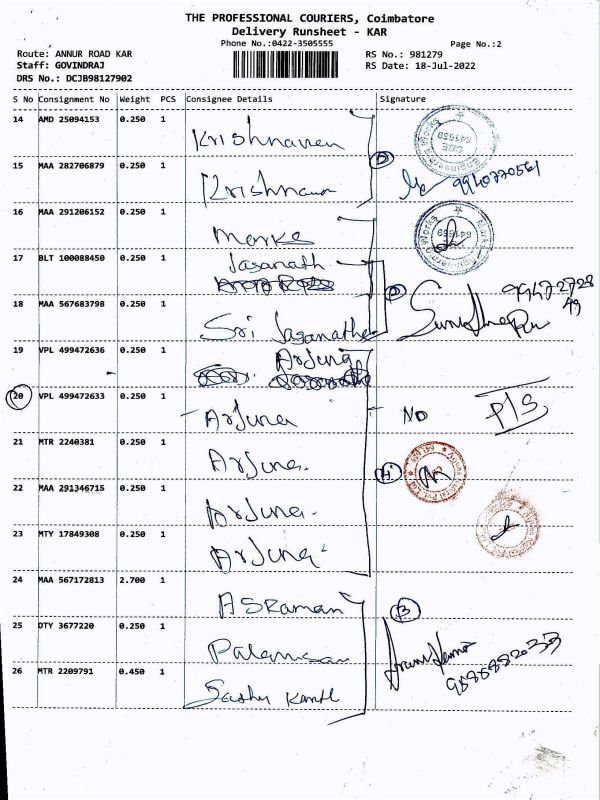 THE PROFESSIONAL COURIERS, Coimbatore
Delivery Runsheet - KAR
Phone No.:0422-3505555 Page No.:2
Route: ANNUR ROAD KAR RS No.: 981279
Staff: GOVINDRAJ RS Date: 18-Jul-2022
DRS No.: DCJB98127902
S No Consignment No Weight PCS Consignee Details Signature
14 AMD 25094153 0.250 1 Krishnaven
15 MAA 282706879 0.250 1 Krishnaven 9940770561
16 MAA 291206152 0.250 1 Marks
17 BLT 100088450 0.250 1 Jaganath
18 MAA 567683798 0.250 1 Sri Jaganatha
19 VPL 499472636 0.250 1 Arjuna
20 VPL 499472633 0.250 1 Arjuna NO P/S
21 MTR 2240381 0.250 1 Arjuna. 4
22 MAA 291346715 0.250 1 Arjuna.
23 MTY 17849308 0.250 1 Arjuna.
24 MAA 567172813 2.700 1 ASRaman 3
25 DTY 3677220 0.250 1
26 MTR 2209791 0.450 1